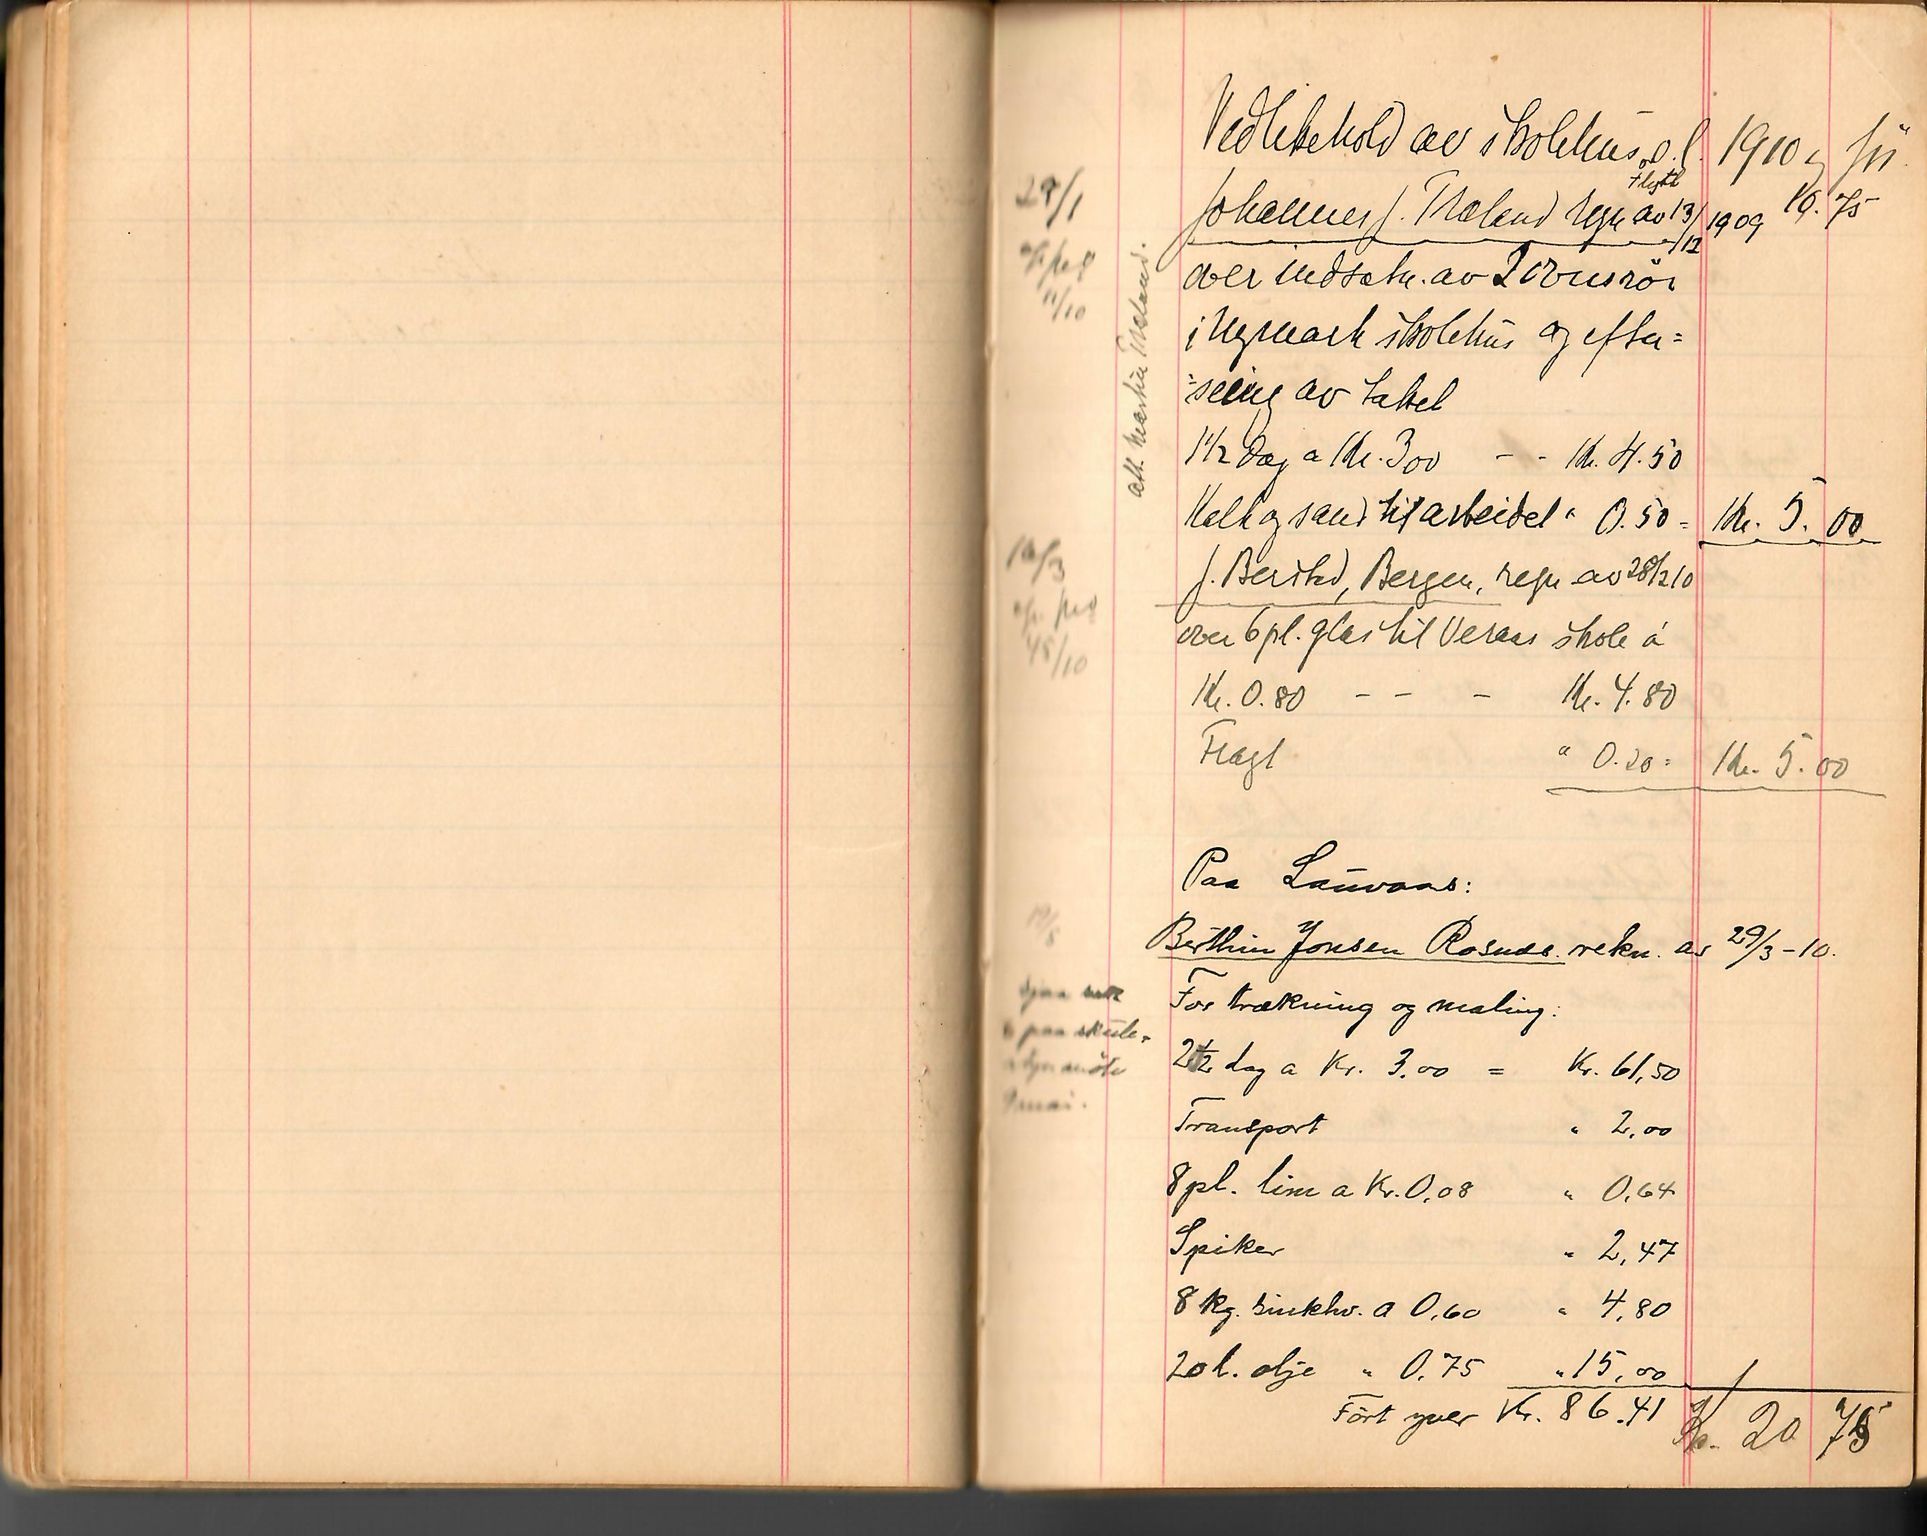 Vedlikehold av skolehus o.l. 1910 og
flytt
Johannes J. Træland regn av 13/12 1909 10.75
over indsætn. av 2 ovnsrör
i Nymark skolehus og efter=
=seeing av takel
1 1/2 dag a Kr. 3 00 - - Kr. 4.50
Kalk og sand til arbeidet " 0.50 = Kr. 5.00
J. Berstad, Bergen, regn av 28/2 10
over 6 pl. glas til Veraas skole á
Kr. 0.80 - - - Kr. 4.80
Fragt " 0.20 = Kr. 5.00
29/1
11/10
att. Martin Træland.
16/3
45/10
Paa Lauvaas:
Berthin Jonsen Rosnæs. rekn. av 29/3-10.
For trækning og maling:
dag a Kr. 3.00 = Kr. 61,50
Transport " 2,00
8 pl. lim a Kr. 0,08 " 0,64
Spiker " 2,47
8 kg. sinkhv. a 0,60 " 4,80
20 l. olje " 0,75 " 15,00
Fört yver Kr. 86.41 Kr. 20 75
19/5
paa skule-
9 mai.